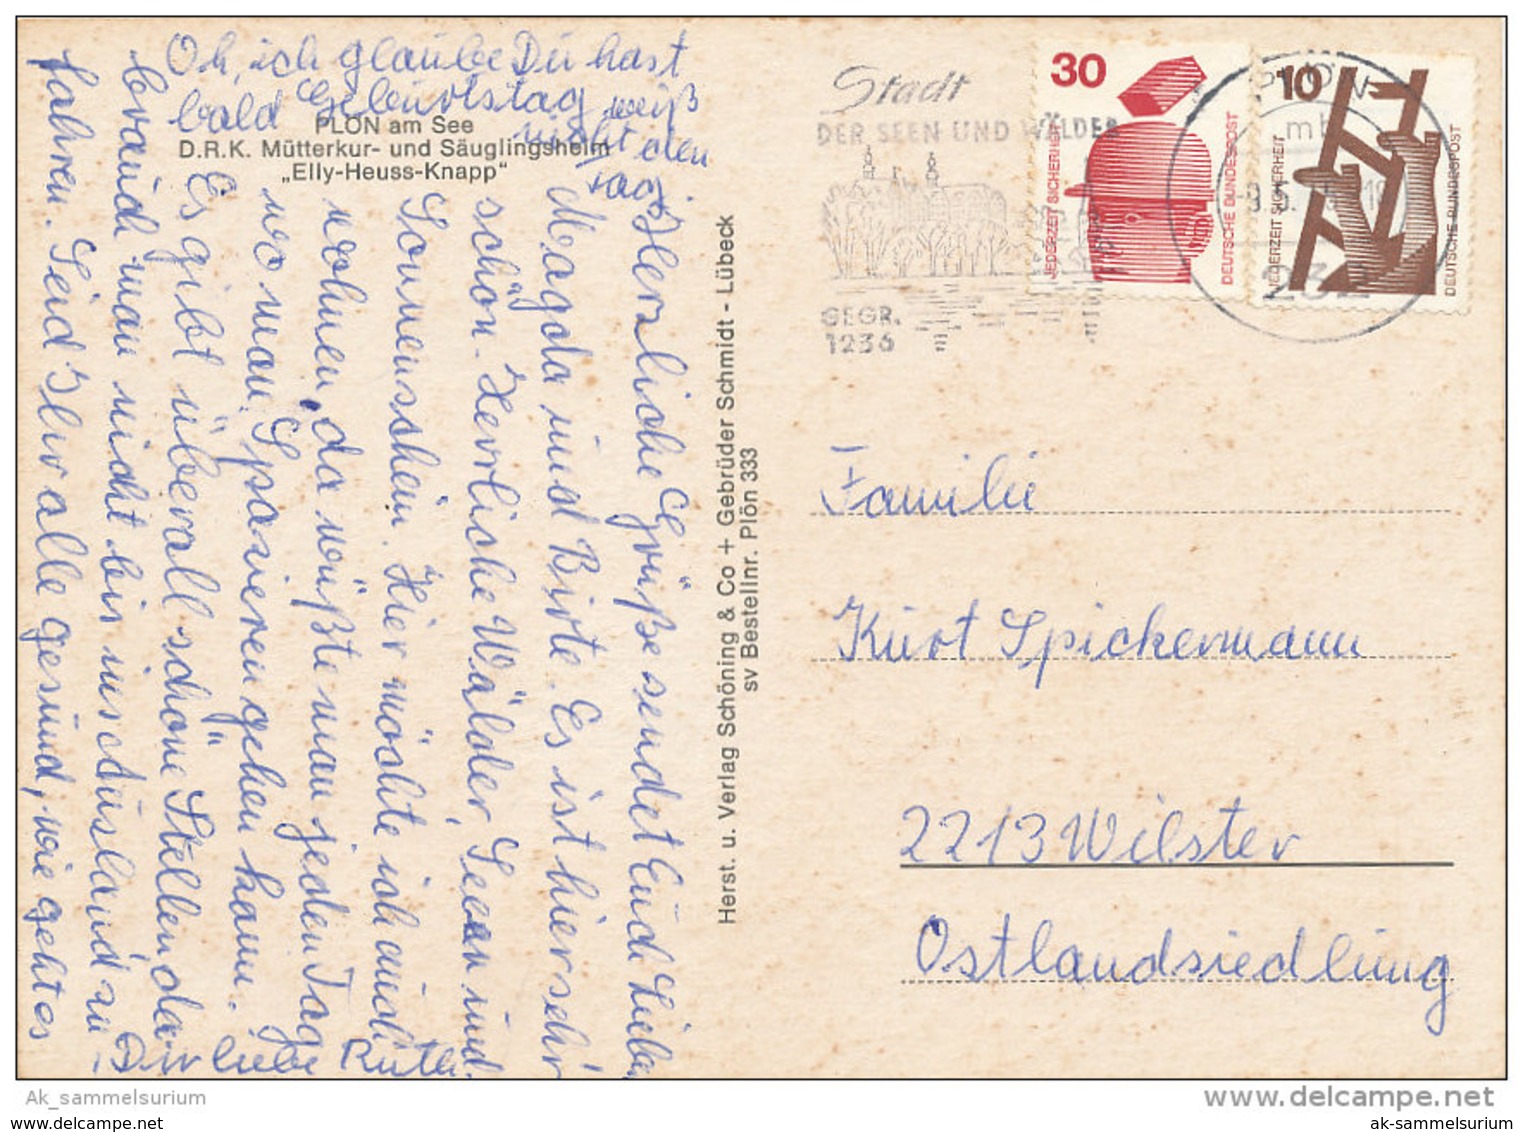 Oh, ich glaube Du hast
bald Geburtstag, weiß
nicht den
Tag.
PLÖN am See
D.R.K. Mütterkur- und Säuglingsheim
„Elly-Heuss-Knapp"
Herzliche Grüße sendet Euch Lieben
Magda und Birte. Es ist hier sehr
schön. Herrliche Wälder, Seeen und
Sonnenschein. Hier möchte ich auch
wohnen, da wüßte man jeden Tag
wo man Spazieren gehen kann.
Es gibt überall schöne Stellen, da
braucht man nicht bis ins Ausland zu
fahren. Seid Ihr alle gesund, wie geht es
Dir liebe Ruth.
Herst. u. Verlag Schöning & Co + Gebrüder Schmidt - Lübeck
sv Bestellnr. Plön 333
Stadt
DER SEEN UND WÄLDER
GEGR.
1236
30
JEDERZEIT SICHERHEIT
DEUTSCHE BUNDESPOST
10
JEDERZEIT SICHERHEIT
DEUTSCHE BUNDESPOST
PLÖN
mb
232
Familie
Kurt Spickermann
2213 Wilster
Ostlandsiedlung
Ak_sammelsurium
www.delcampe.net
ak-sammelsurium
ak-sammelsurium